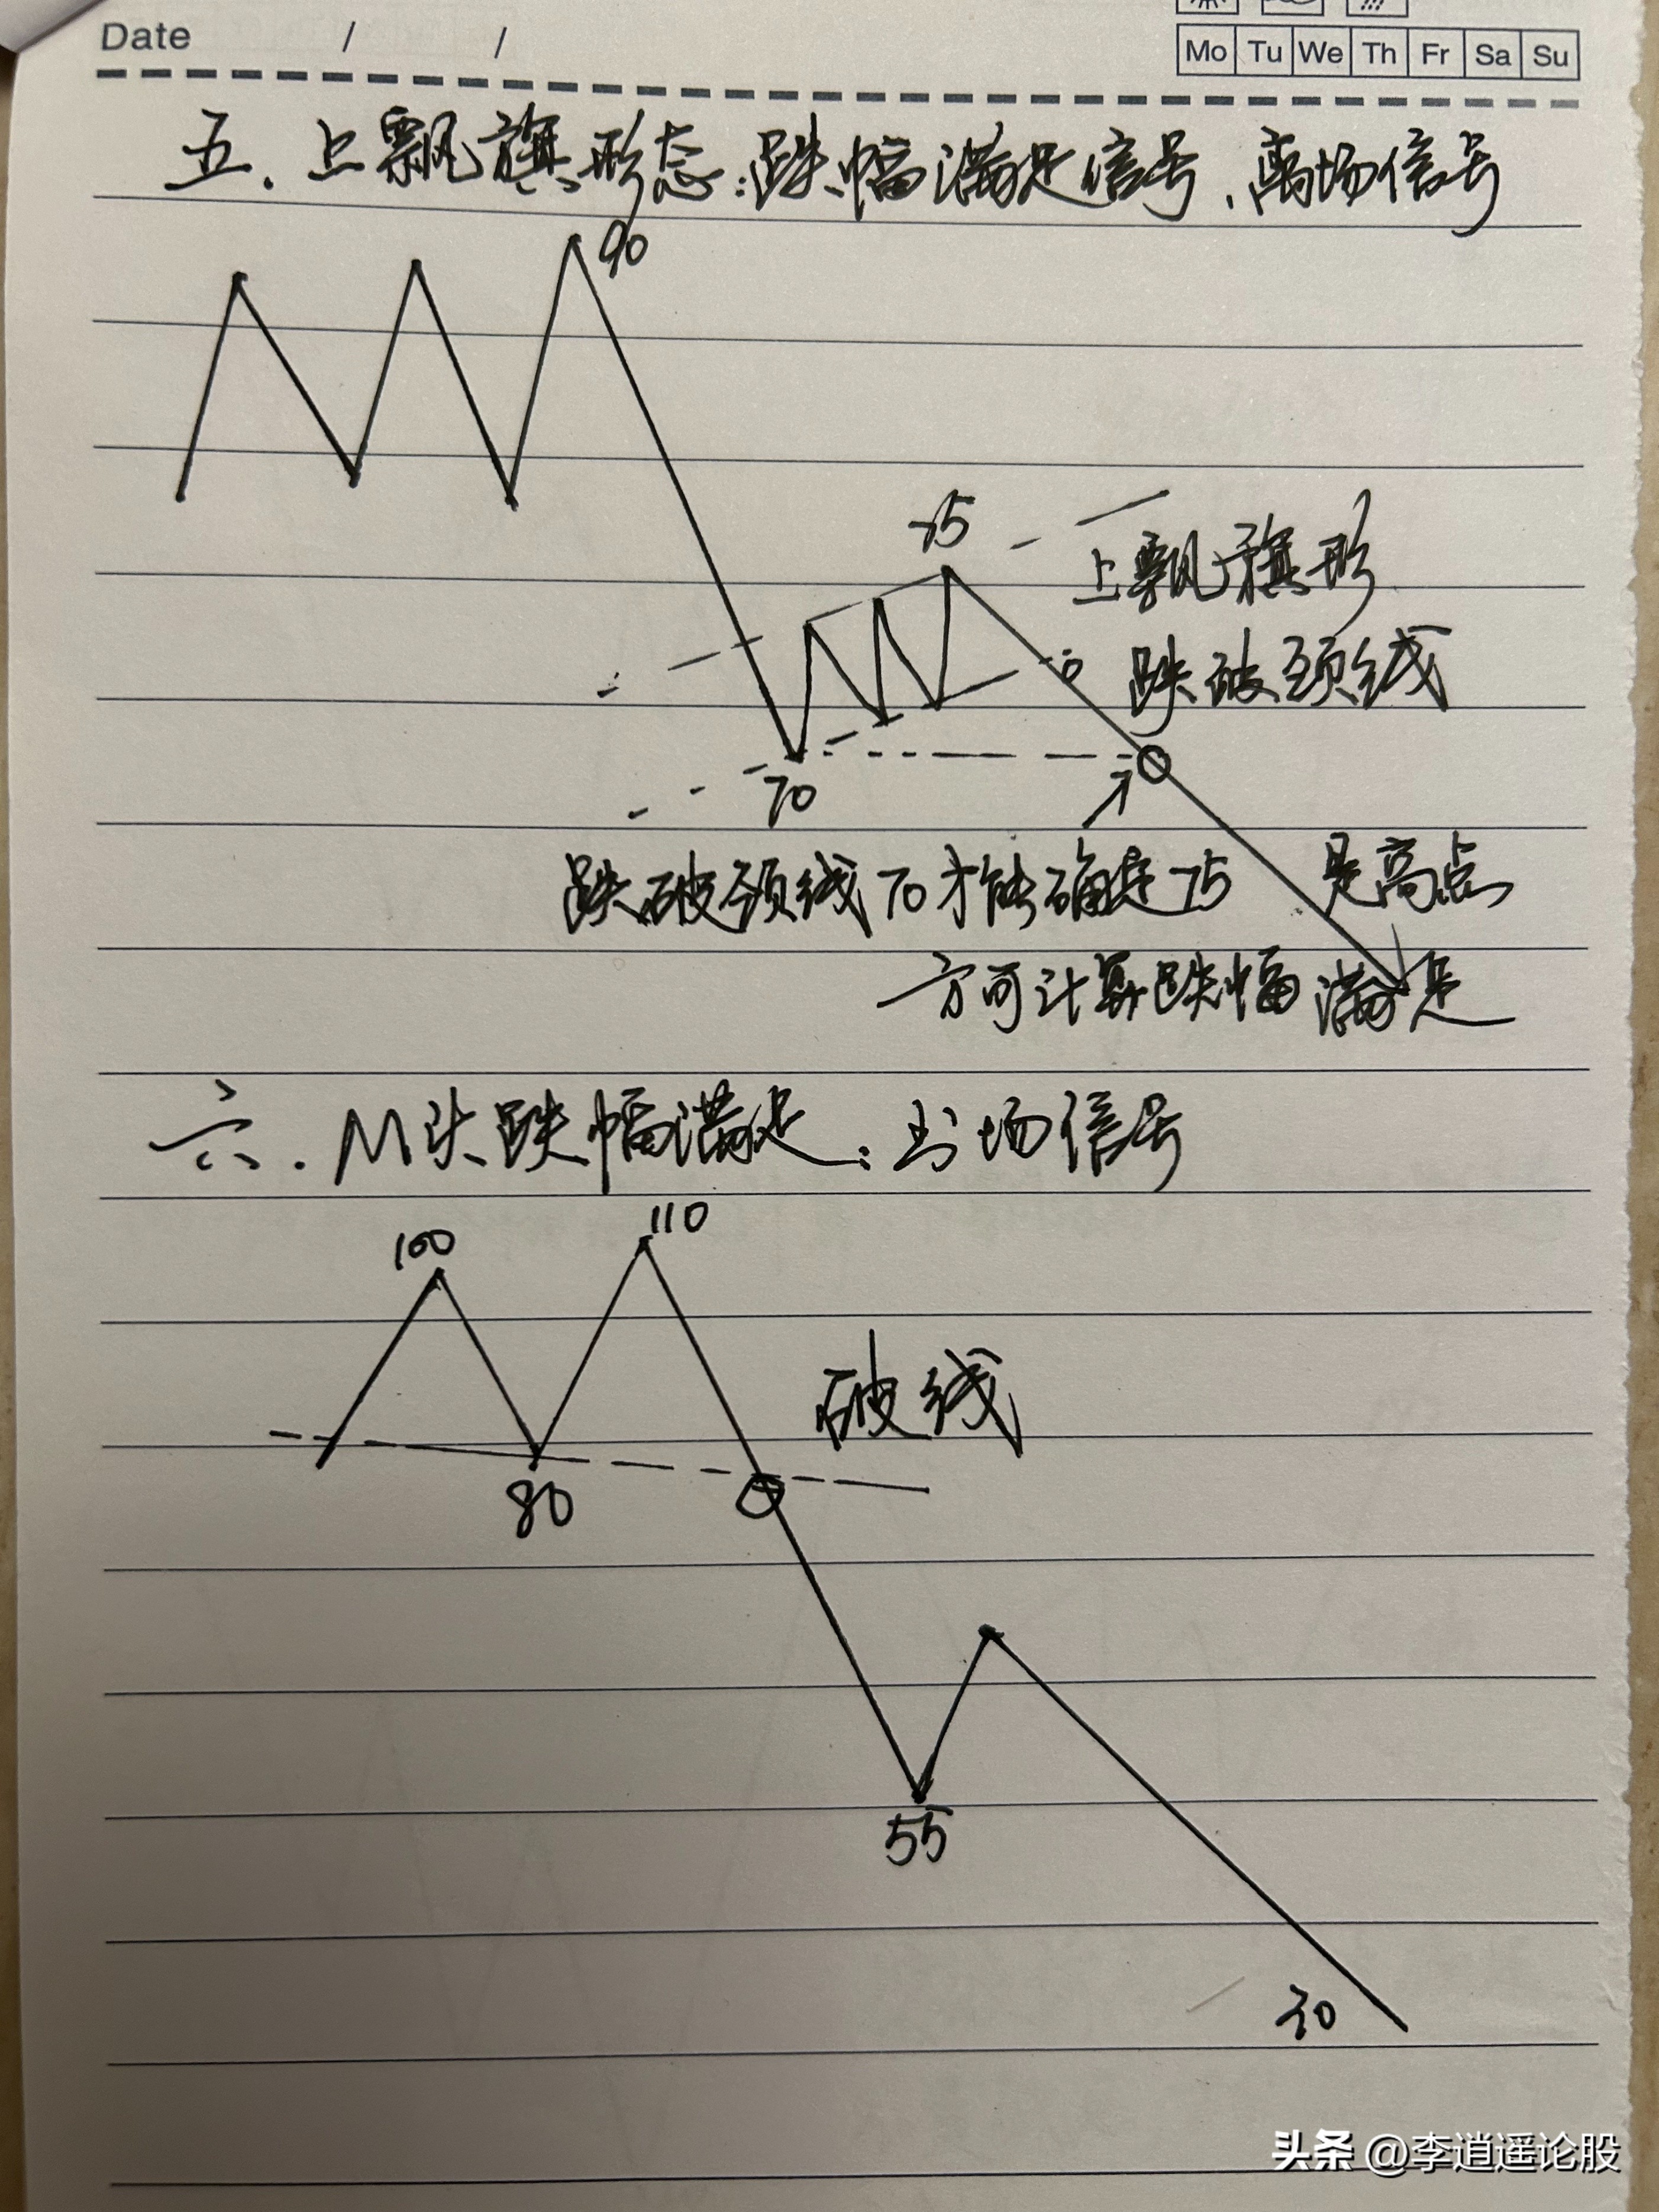 Date / /
Mo Tu We Th Fr Sa Su
五、上飘旗形态:跌幅满足信号、离场信号
90
75
上飘旗形
跌破颈线
70
跌破颈线70才能确定75 是高点
方可计算跌幅满足
六、M头跌幅满足:出场信号
110
100
破线
80
55
30
头条 @李逍遥论股